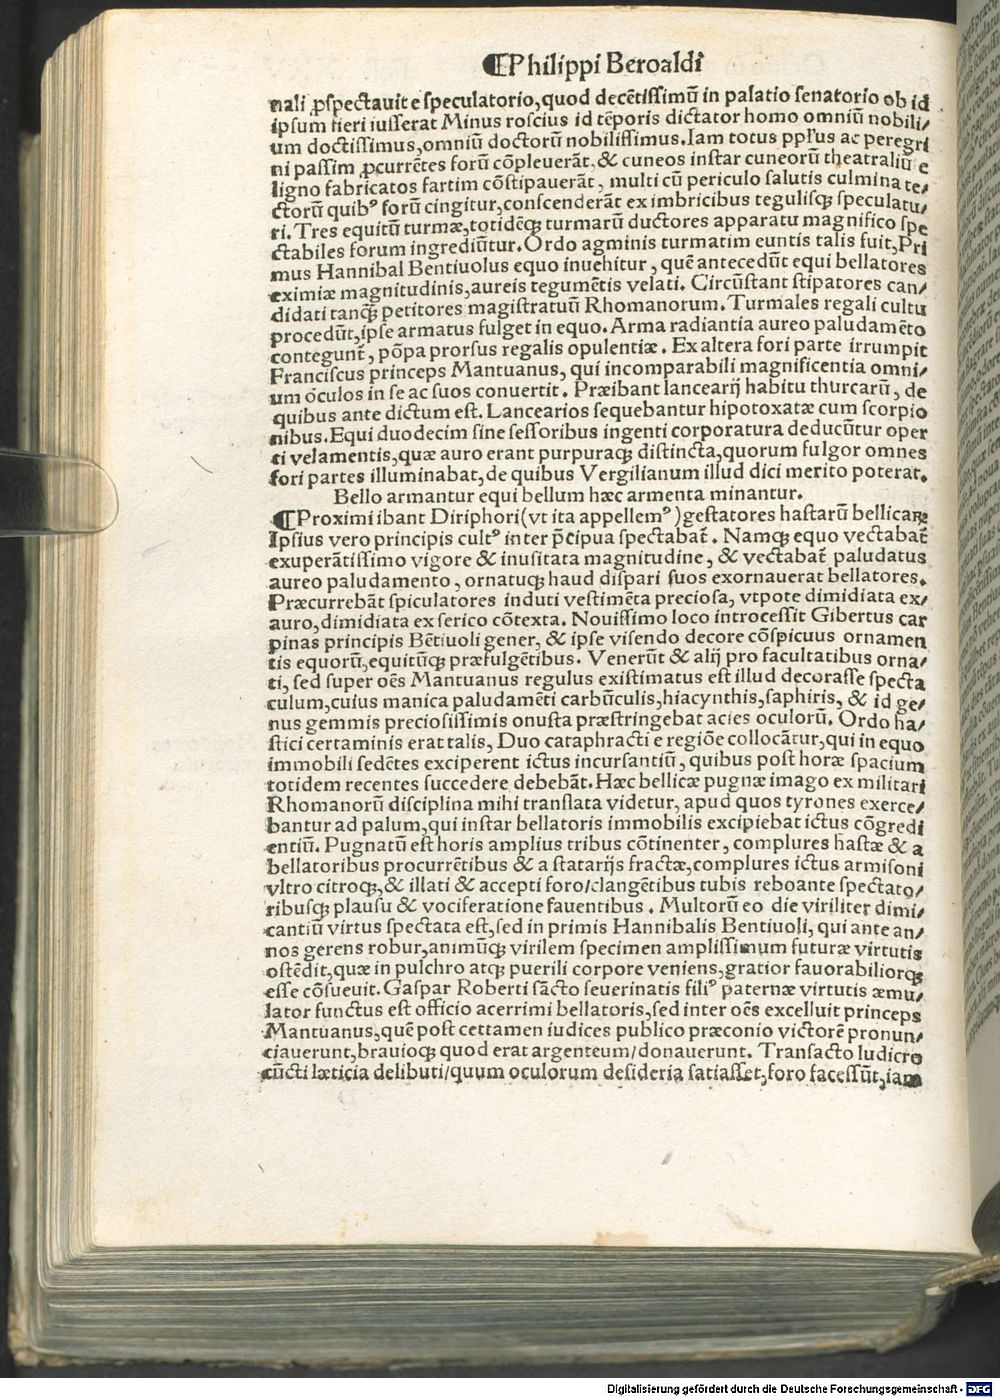 ¶Philippi Beroaldi
nali ꝓspectauit e speculatorio,quod decētissimū in palatio senatorio ob id
ipsum fieri iusserat Minus roscius id tēporis dictator homo omniū nobili/
um doctissimus,omniū doctorū nobilissimus.Iam totus ppl̄us ac peregri
ni passim ꝓcurrētes forū cōpleuerāt,& cuneos instar cuneorū theatraliū e
ligno fabricatos fartim cōstipauerāt, multi cū periculo salutis culmina te/
ctorū quibꝰ forū cingitur,conscenderāt ex imbricibus tegulisqꝫ speculatu/
ri.Tres equitū turmæ,totidēqꝫ turmarū ductores apparatu magnifico spe
ctabiles forum ingrediūtur.Ordo agminis turmatim euntis talis fuit,Pri
mus Hannibal Bentiuolus equo inuehitur, quē antecedūt equi bellatores
eximiæ magnitudinis,aureis tegumētis velati. Circūstant stipatores can/
didati tanqꝫ̄ petitores magistratuū Rhomanorum.Turmales regali cultu
procedūt,ipse armatus fulget in equo.Arma radiantia aureo paludamēto
contegunt̄, pōpa prorsus regalis opulentiæ. Ex altera fori parte irrumpit
Franciscus princeps Mantuanus, qui incomparabili magnificentia omni/
um oculos in se ac suos conuertit. Præibant lancearij habitu thurcarū, de
quibus ante dictum est. Lancearios sequebantur hipotoxatæ cum scorpio
nibus.Equi duodecim sine sessoribus ingenti corporatura deducūtur oper
ti velamentis,quæ auro erant purpuraqꝫ distincta,quorum fulgor omnes
fori partes illuminabat,de quibus Vergilianum illud dici merito poterat.
Bello armantur equi bellum hæc armenta minantur.
¶Proximi ibant Diriphori(vt ita appellemꝰ)gestatores hastarū bellicaꝝ
Ipsius vero principis cultꝰ inter p̄cipua spectabat̄. Namqꝫ equo vectabat̄
exuperātissimo vigore & inusitata magnitudine, & vectabat̄ paludatus
aureo paludamento, ornatuqꝫ haud dispari suos exornauerat bellatores.
Præcurrebāt spiculatores induti vestimēta preciosa, vtpote dimidiata ex/
auro,dimidiata ex serico cōtexta. Nouissimo loco introcessit Gibertus car
pinas principis Bētiuoli gener, & ipse visendo decore cōspicuus ornamen
tis equorū,equitūqꝫ præfulgētibus. Venerūt & alij pro facultatibus orna/
ti, sed super oēs Mantuanus regulus existimatus est illud decorasse specta
culum,cuius manica paludamēti carbūculis,hiacynthis,saphiris, & id ge/
nus gemmis preciosissimis onusta præstringebat acies oculorū. Ordo ha/
stici certaminis erat talis, Duo cataphracti e regiōe collocātur,qui in equo
immobili sedētes exciperent ictus incursantiū, quibus post horæ spacium
totidem recentes succedere debebāt.Hæc bellicæ pugnæ imago ex militari
Rhomanorū disciplina mihi translata videtur, apud quos tyrones exerce/
bantur ad palum,qui instar bellatoris immobilis excipiebat ictus cōgredi
entiū. Pugnatū est horis amplius tribus cōtinenter, complures hastæ & a
bellatoribus procurrētibus & a statarijs fractæ,complures ictus armisoni
vltro citroqꝫ,& illati & accepti foro/clangētibus tubis reboante spectato/
ribusqꝫ plausu & vociferatione fauentibus. Multorū eo die viriliter dimi/
cantiū virtus spectata est,sed in primis Hannibalis Bentiuoli, qui ante an/
nos gerens robur,animūqꝫ virilem specimen amplissimum futuræ virtutis
ostēdit,quæ in pulchro atqꝫ puerili corpore veniens,gratior fauorabiliorqꝫ
esse cōsueuit. Gaspar Roberti sācto seuerinatis filiꝰ paternæ virtutis æmu/
lator functus est officio acerrimi bellatoris,sed inter oēs excelluit princeps
Mantuanus,quē post cettamen iudices publico præconio victorē pronun/
ciauerunt,brauioqꝫ quod erat argenteum/donauerunt. Transacto ludicro
cūcti læticia delibuti/quum oculorum desideria satiasset,foro facessūt,iam
Digitalisierung gefördert durch die Deutsche Forschungsgemeinschaft - DFG